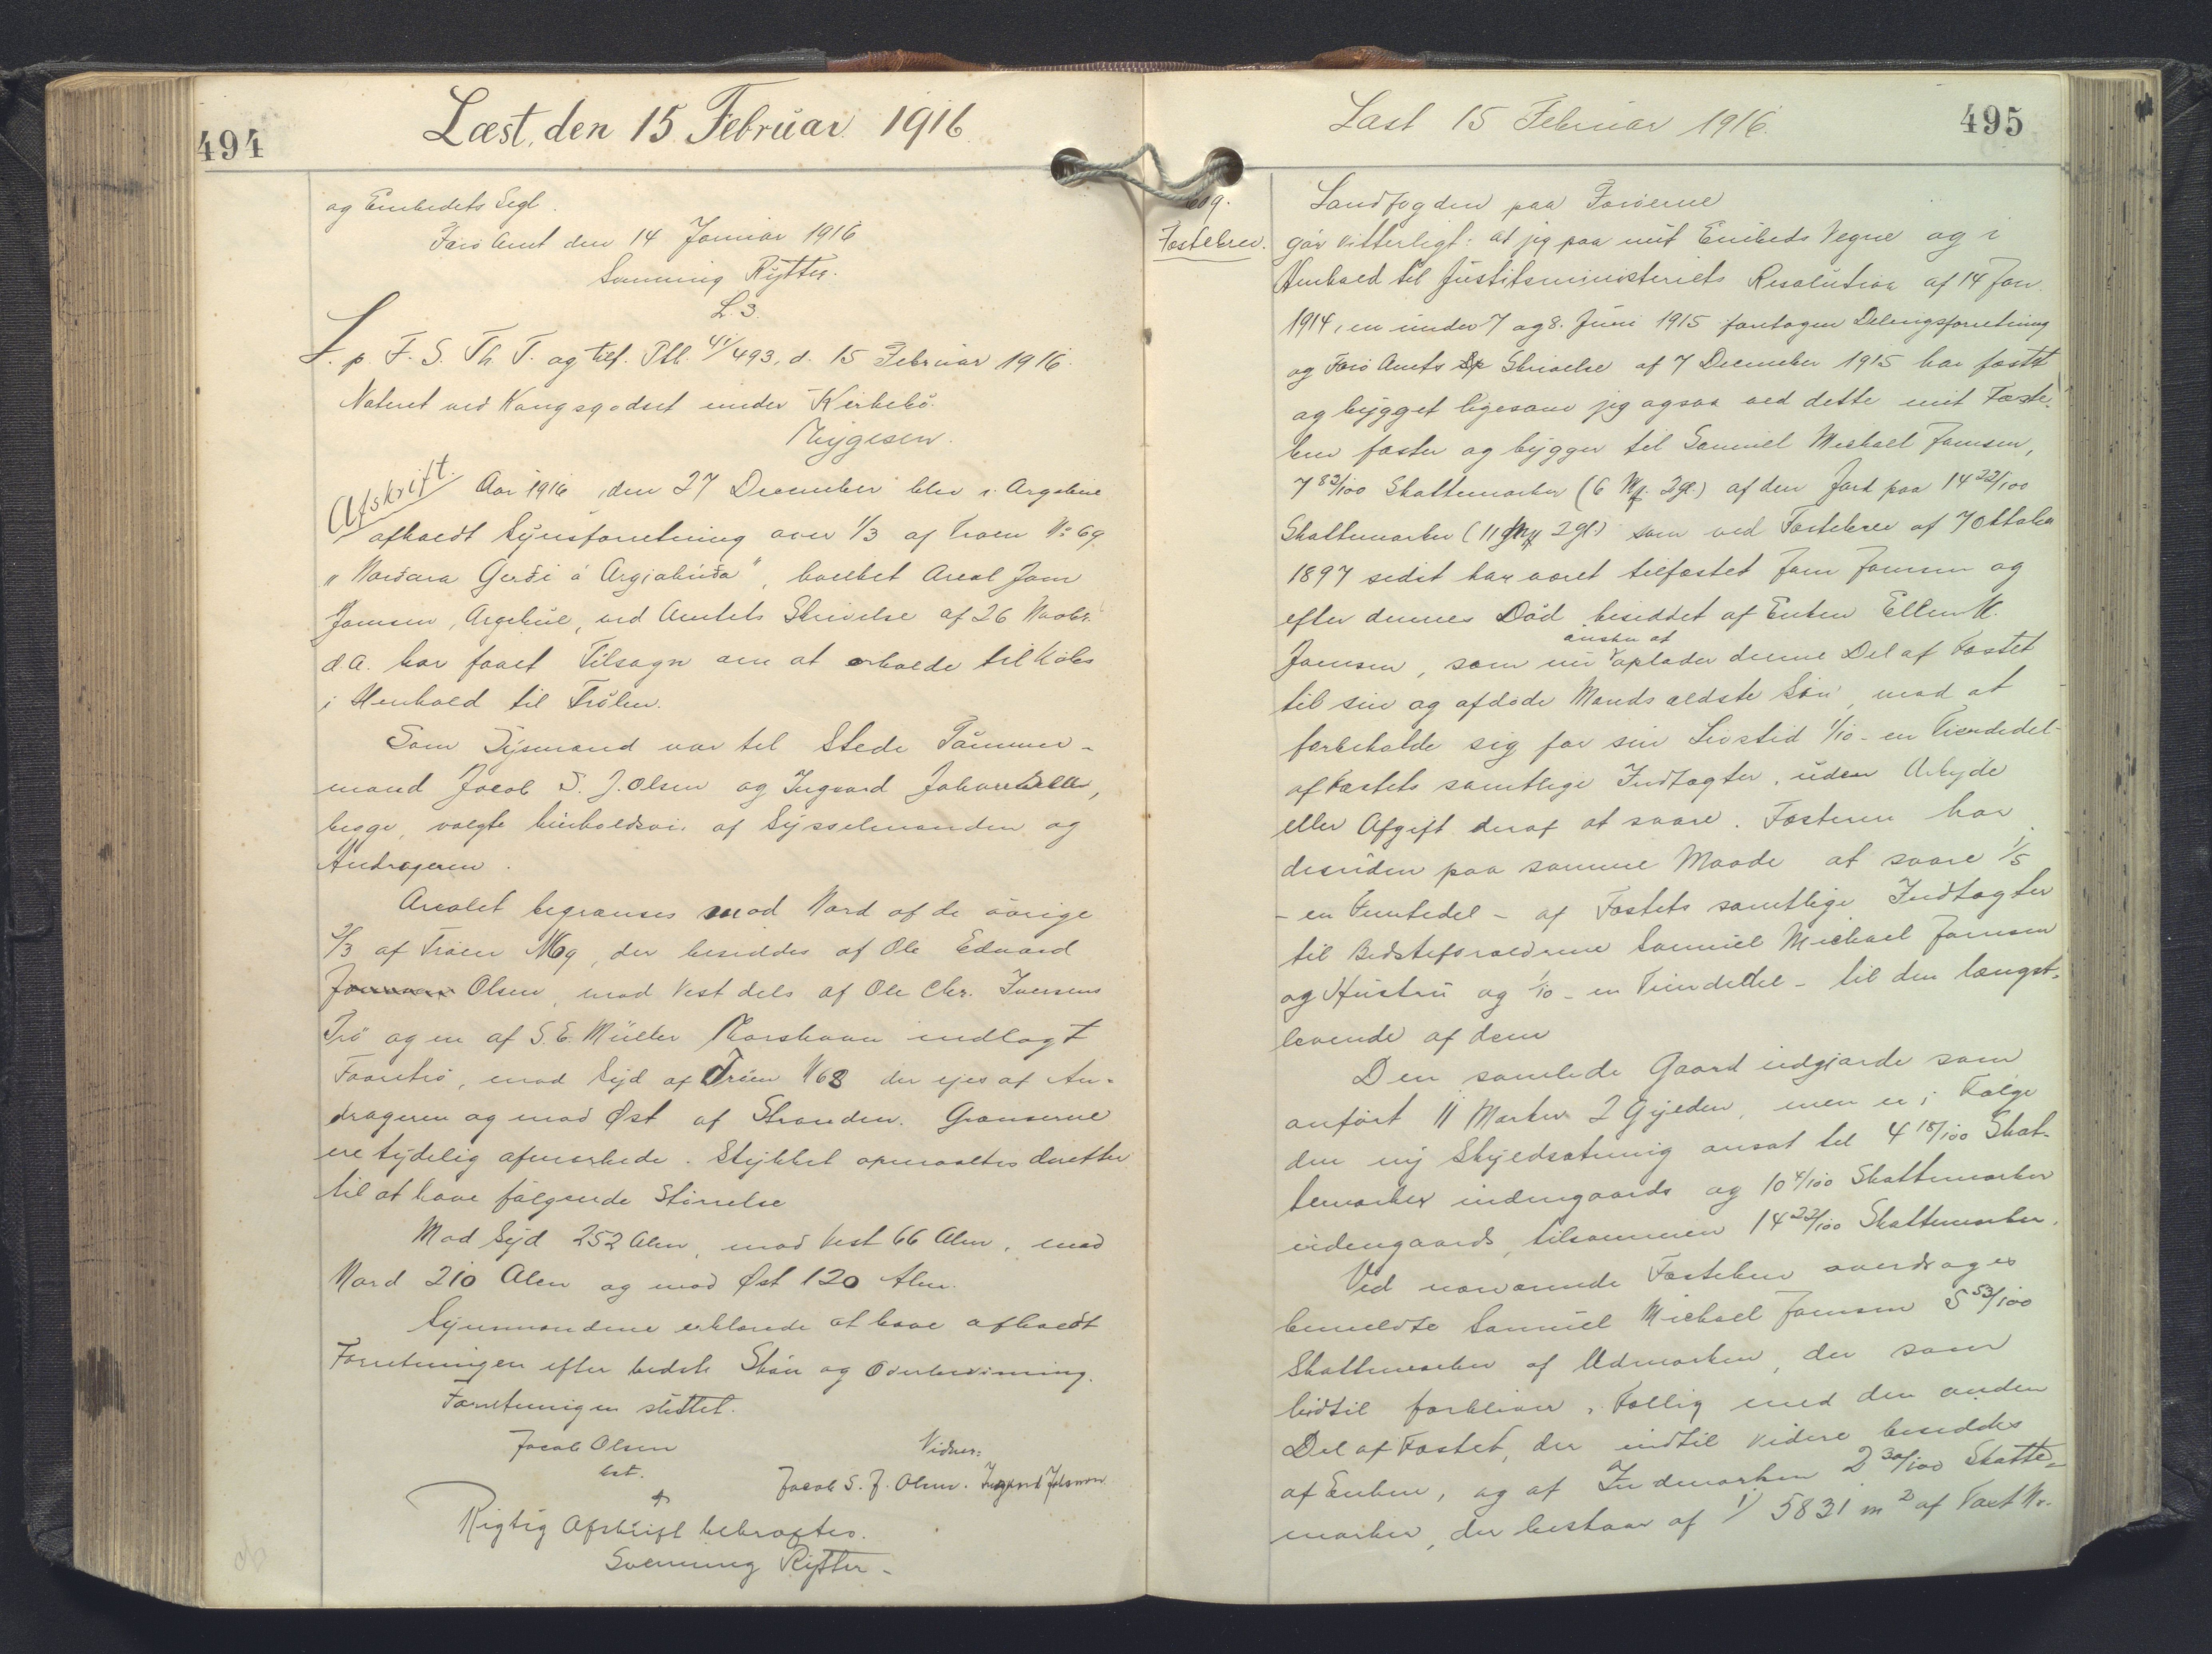 494
Læst, den 15 Februar 1916
og Embedets Segl.
Færø Amt den 14 Januar 1916
Svenning Rytter.
L. S.
L. p. F. S. Th. T. og tilf. Ptb. 41/493, d. 15 Februar 1916.
Noteret ved Kongsgodset under Kirkebø.
Mygesen.
Afskrift.
Aar 1916, den 27 December blev i Argebøe
afholdt Synsforretning over 1/3 af Trøen No 69
"Nordara Gerði á Argjabúða", hvilket Areal Joen
Joensen, Argebøe, ved Amtets Skrivelse af 26 Novbr.
d. A. har faaet Tilsagn om at erholde til Købs
i Henhold til Trølov.
Som Synsmænd var til Stede Tømmer-
mand Jacob S. J. Olsen og Ingvard Johannesen,
begge valgte henholdsvis af Sysselmanden og
Andrageren.
Arealet begrænses mod Nord af de øvrige
2/3 af Trøen N69, der besiddes af Ole Edvard
Joensen Olsen, mod Vest dels af Ole Chr. Iversens
Trø og en af S. E. Müller Thorshavn indlagt
Faaretrø, mod Syd af Trøen N68 der ejes af An-
drageren og mod Øst af Stranden. Grænserne
ere tydelig afmærkede. Stykket opmaaltes derefter
til at have følgende Størrelse
Mod Syd 252 Alen, mod Vest 66 Alen, mod
Nord 210 Alen og mod Øst 120 Alen.
Synsmændene erklærede at have afholdt
Forretningen efter bedste Skøn og Overbevisning.
Forretningen sluttet.
Jacob Olsen
bst.
Vidner:
Jacob S. J. Olsen. Ingvard Johannesen
Rigtig Afskrift bekræftes.
Svenning Rytter
495
Læst 15 Februar 1916.
Fæstebrev.
Landfogden paa Færøerne
gør vitterligt: at jeg paa mit Embeds Vegne og i
Henhold til Justitsministeriets Resolution af 14 Jan.
1914, en under 7 og 8. Juni 1915 foretagen Delingsforretning
og Færø Amts Sp Skrivelse af 7 December 1915 har fæstet
og bygget ligesom jeg ogsaa ved dette mit Fæste-
brev fæster og bygger til Samuel Michael Joensen,
7 82/100 Skattemarker (6 Mk. 2 gl.) af den Jord paa 14 22/100
Skattemarker (11 Mk 2 gl.) som ved Fæstebrev af 7 Oktober
1897 sidst har været tilfæstet Joen Joensen og
efter dennes Død besiddet af Enken Ellen M.
Joensen, som nu ønsker at oplader denne Del af Fæstet
til sin og afdøde Mands ældste Søn, mod at
forbeholde sig for sin Livstid 1/10 - en Tiendedel -
af Fæstets samtlige Indtægter, uden Arbejde
eller Afgift deraf at svare. Fæsteren har
desuden paa samme Maade at svare 1/5
- en Femtedel - af Fæstets samtlige Indtægter
til Bedsteforældrene Samuel Michael Joensen
og Hustru og 1/10 - en Tiendedel - til den længst-
levende af dem
Den samlede Gaard udgjorde som
anført 11 Marker 2 Gylden, men er i Følge
den ny Skyldsætning ansat til 4 18/100 Skat-
temarker indengaards og 10 4/100 Skattemarker
udengaards, tilsammen 14 22/100 Skattemarker.
Ved nærværende Fæstebrev overdrages
bemeldte Samuel Michael Joensen 5 53/100
Skattemarker af Udmarken, der som
hidtil forbliver i Fællig med den anden
Del af Fæstet, der indtil videre besiddes
af Enken, og af Indmarken 2 30/100 Skatte-
marker, der bestaar af 1) 5831 m2 af Vaxt Nr.